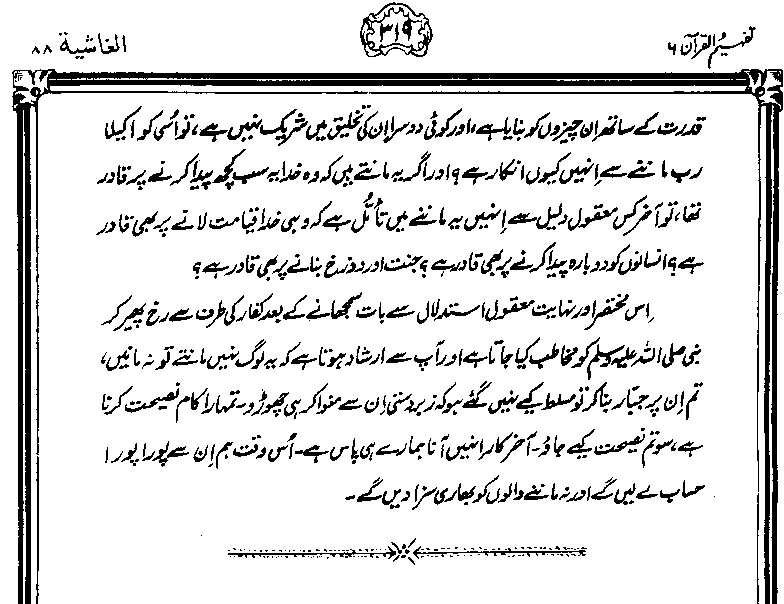 تفہیم القرآن ۶
۳۱۹
الغاشیة ۸۸
قدرت کے ساتھ ان چیزوں کو بنایا ہے، اور کوئی دوسرا ان کی تخلیق میں شریک نہیں ہے، تو اُسی کو اکیلا
رب ماننے سے اِنہیں کیوں انکار ہے؟ اور اگر یہ مانتے ہیں کہ وہ خدا یہ سب کچھ پیدا کرنے پر قادر
تھا، تو آخر کس معقول دلیل سے اِنہیں یہ ماننے میں تأمُّل ہے کہ وہی خدا قیامت لانے پر بھی قادر
ہے؟ انسانوں کو دوبارہ پیدا کرنے پر بھی قادر ہے؟ جنت اور دوزخ بنانے پر بھی قادر ہے؟
اِس مختصر اور نہایت معقول استدلال سے بات سمجھانے کے بعد کفار کی طرف سے رخ پھیر کر
نبی صلی اللہ علیہ وسلم کو مخاطب کیا جاتا ہے اور آپ سے ارشاد ہوتا ہے کہ یہ لوگ نہیں مانتے تو نہ مانیں،
تم اِن پر جبّار بنا کر تو مسلط کیے نہیں گئے ہو کہ زبردستی اِن سے منوا کر ہی چھوڑو۔ تمہارا کام نصیحت کرنا
ہے، سو تم نصیحت کیے جاؤ۔ آخرکار اِنہیں آنا ہمارے ہی پاس ہے۔ اُس وقت ہم اِن سے پورا پورا
حساب لے لیں گے اور نہ ماننے والوں کو بھاری سزا دیں گے۔